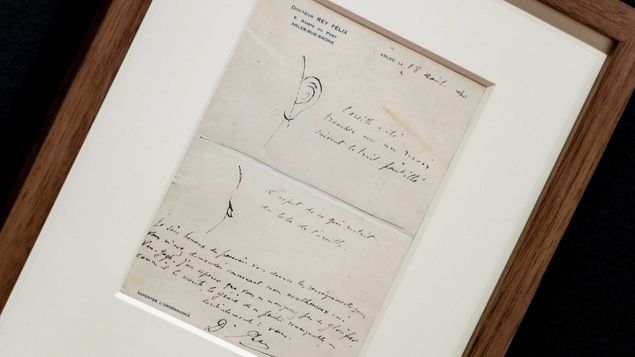 DOCTEUR REY FÉLIX
6, RAMPE DU PONT
ARLES-SUR-RHÔNE
ARLES, LE 18 août
L'oreille a été
tranchée au rasoir
suivant le trait pointillé.
L'aspect de ce qui restait
du lobe de l'oreille.
Je suis heureux de pouvoir vous donner les renseignements que
vous me demandez concernant mon malheureux ami
Van Gogh. J'ose espérer que vous ne manquerez pas de glorifier
comme il le mérite le génie de ce peintre remarquable
Cordialement à vous.
Dr Rey
RAPPORTER L'ORDONNANCE